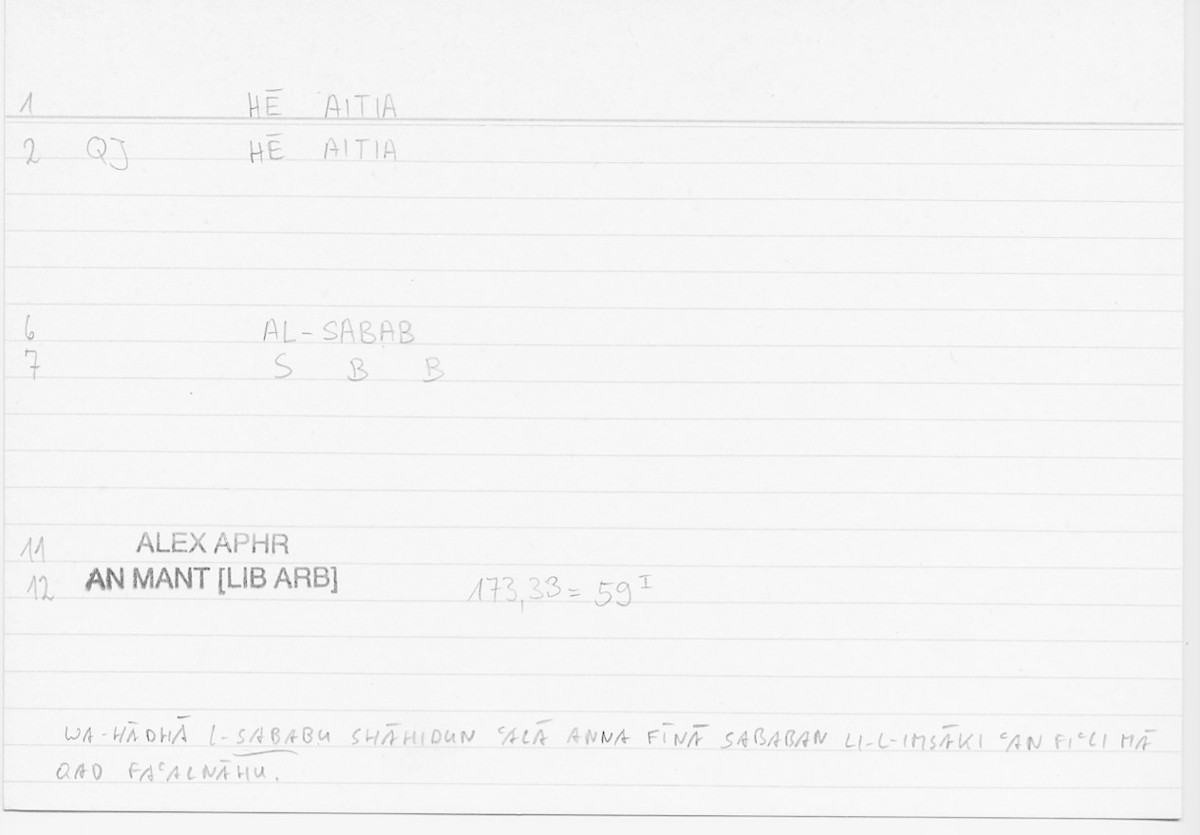 1 HĒ AITIA
2 QJ HĒ AITIA
6 AL-SABAB
7 S B B
11 ALEX APHR
12 AN MANT [LIB ARB] 173,33 = 59 I
WA-HĀDHĀ L-SABABU SHĀHIDUN ʿALĀ ANNA FĪNĀ SABABAN LI-L-IMSĀKI ʿAN FIʿLI MĀ
QAD FAʿALNĀHU.